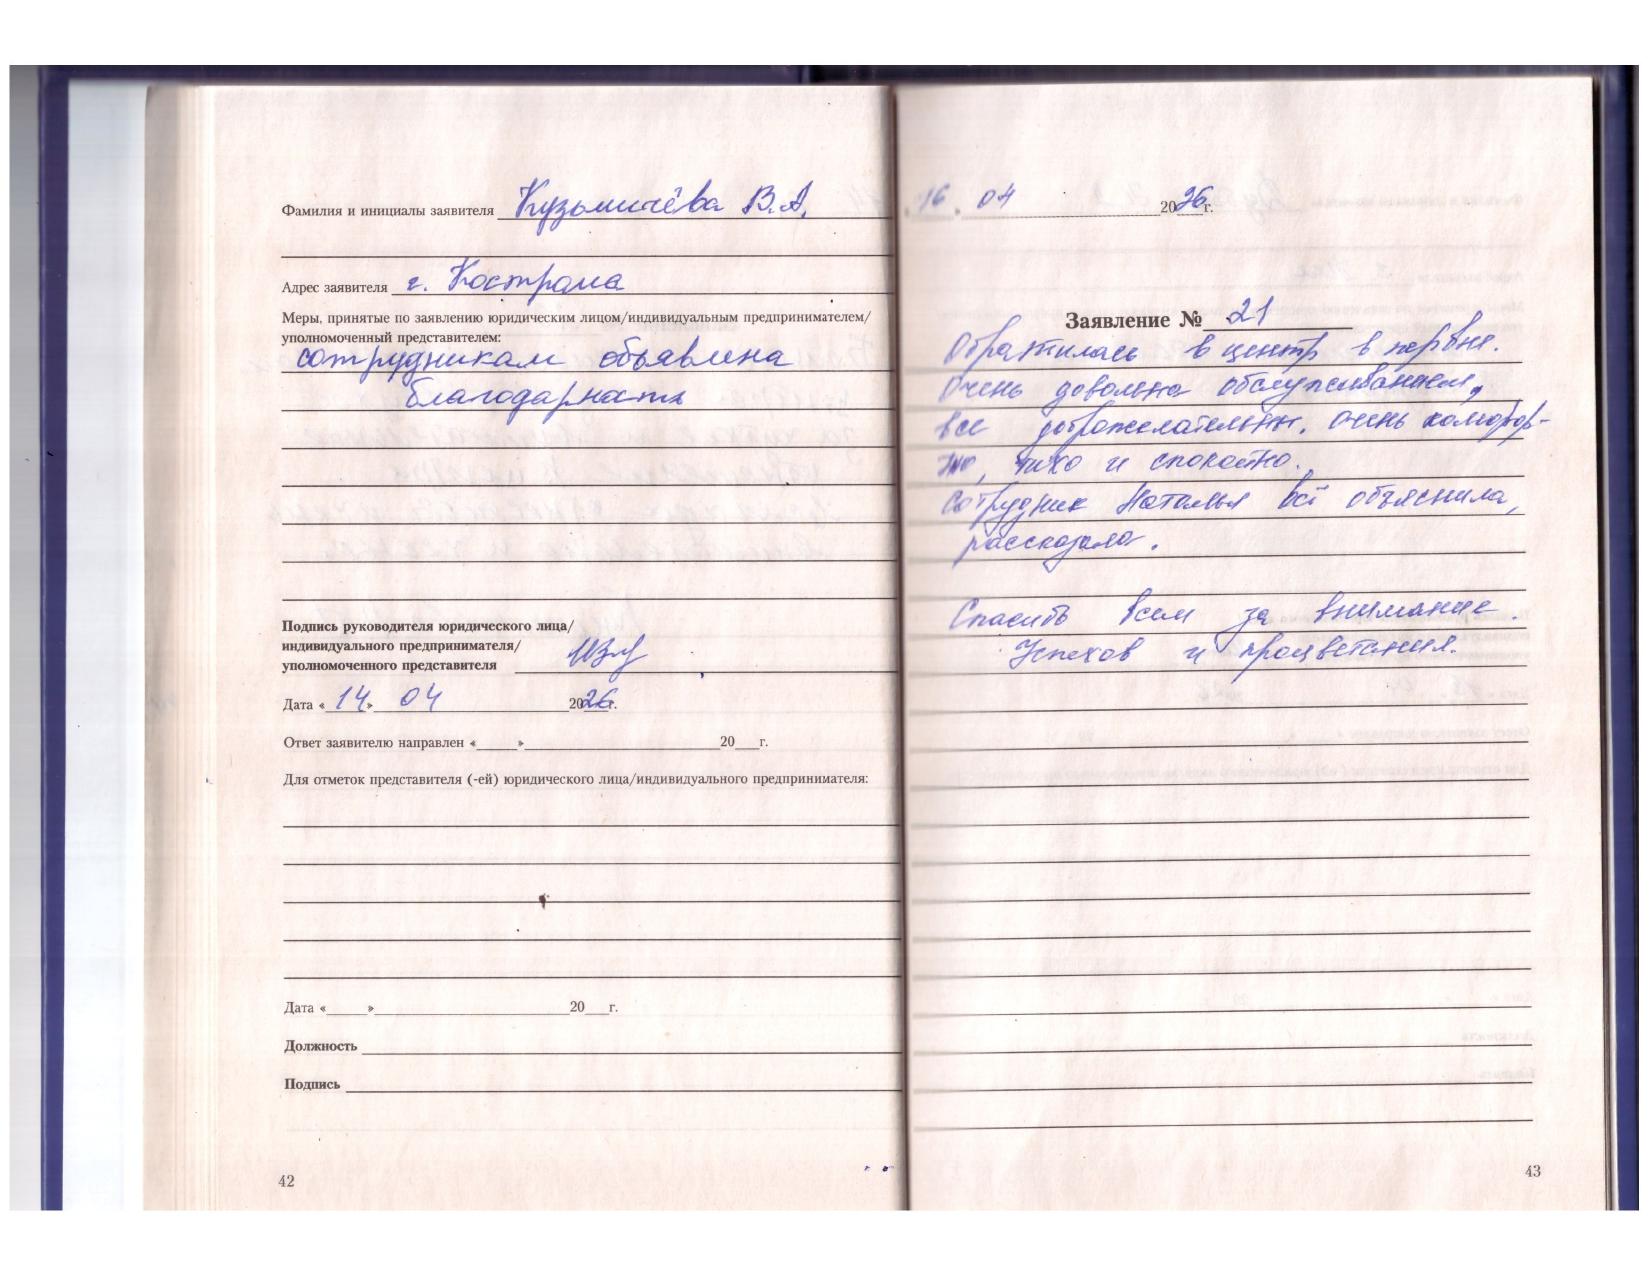 Фамилия и инициалы заявителя Кузьмичёва В.А.
Адрес заявителя г. Кострома
Меры, принятые по заявлению юридическим лицом/индивидуальным предпринимателем/
уполномоченный представителем:
сотрудникам объявлена
благодарность
Подпись руководителя юридического лица/
индивидуального предпринимателя/
уполномоченного представителя
Дата «14» 04 2026г.
Ответ заявителю направлен «_____»________ 20___г.
Для отметок представителя (-ей) юридического лица/индивидуального предпринимателя:
Дата «_____»________ 20___г.
Должность
Подпись
42
16. 04 2026г.
Заявление № 21
Обратилась в центр в первые.
Очень довольна обслуживанием,
все доброжелательны. Очень комфор-
тно, тихо и спокойно.
Сотрудник Наталья всё объяснила,
рассказала.
Спасибо всем за внимание.
Успехов и процветания.
43